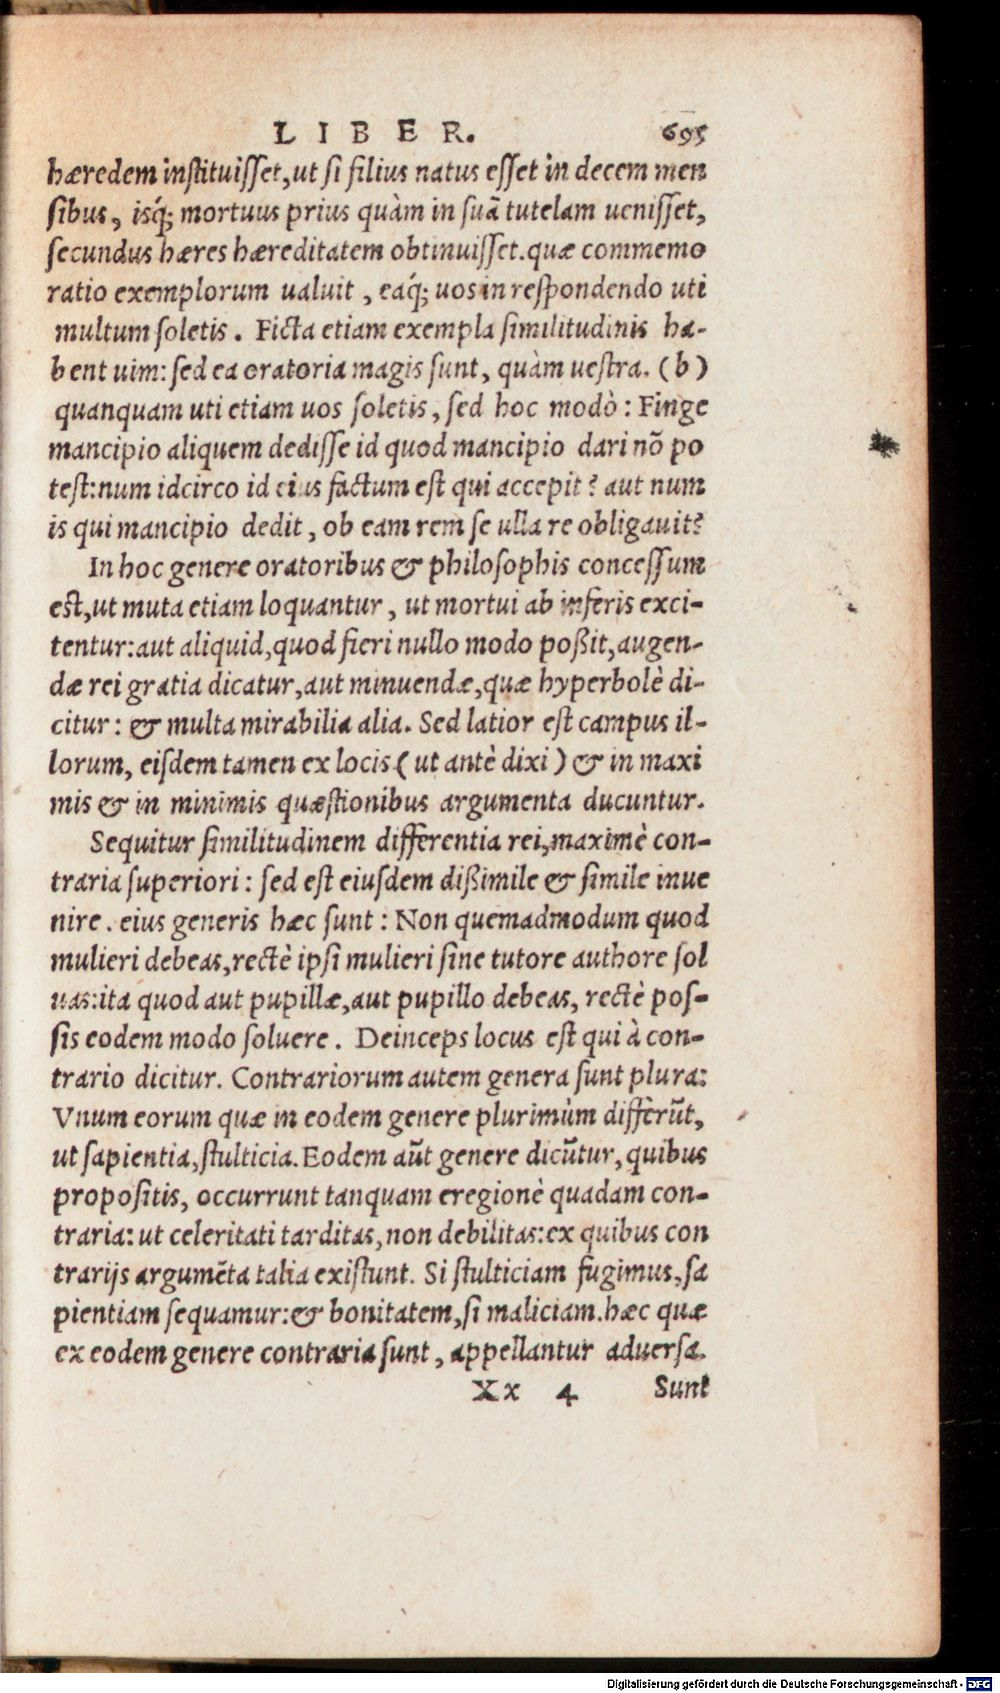 LIBER. 695
hæredem instituisset, ut si filius natus esset in decem men
sibus, isq́; mortuus prius quàm in suã tutelam uenisset,
secundus hæres hæreditatem obtinuisset. quæ commemo
ratio exemplorum ualuit, eaq́; uos in respondendo uti
multum soletis. Ficta etiam exempla similitudinis ha-
bent uim: sed ea oratoria magis sunt, quàm uestra. (b)
quanquam uti etiam uos soletis, sed hoc modò: Finge
mancipio aliquem dedisse id quod mancipio dari nõ po
test: num idcirco id eius factum est qui accepit? aut num
is qui mancipio dedit, ob eam rem se ulla re obligauit?
In hoc genere oratoribus & philosophis concessum
est, ut muta etiam loquantur, ut mortui ab inferis exci-
tentur: aut aliquid, quod fieri nullo modo poßit, augen-
dæ rei gratia dicatur, aut minuendæ, quæ hyperbolè di-
citur: & multa mirabilia alia. Sed latior est campus il-
lorum, eisdem tamen ex locis (ut antè dixi) & in maxi
mis & in minimis quæstionibus argumenta ducuntur.
Sequitur similitudinem differentia rei, maximè con-
traria superiori: sed est eiusdem dißimile & simile inue
nire. eius generis hæc sunt: Non quemadmodum quod
mulieri debeas, rectè ipsi mulieri sine tutore authore sol
uas: ita quod aut pupillæ, aut pupillo debeas, rectè pos-
sis eodem modo soluere. Deinceps locus est qui à con-
trario dicitur. Contrariorum autem genera sunt plura:
Vnum eorum quæ in eodem genere plurimùm differũt,
ut sapientia, stulticia. Eodem aũt genere dicũtur, quibus
propositis, occurrunt tanquam eregionè quadam con-
traria: ut celeritati tarditas, non debilitas: ex quibus con
trarijs argumẽta talia existunt. Si stulticiam fugimus, sa
pientiam sequamur: & bonitatem, si maliciam. hæc quæ
ex eodem genere contraria sunt, appellantur aduersa.
Xx 4 Sunt
Digitalisierung gefördert durch die Deutsche Forschungsgemeinschaft - DFG